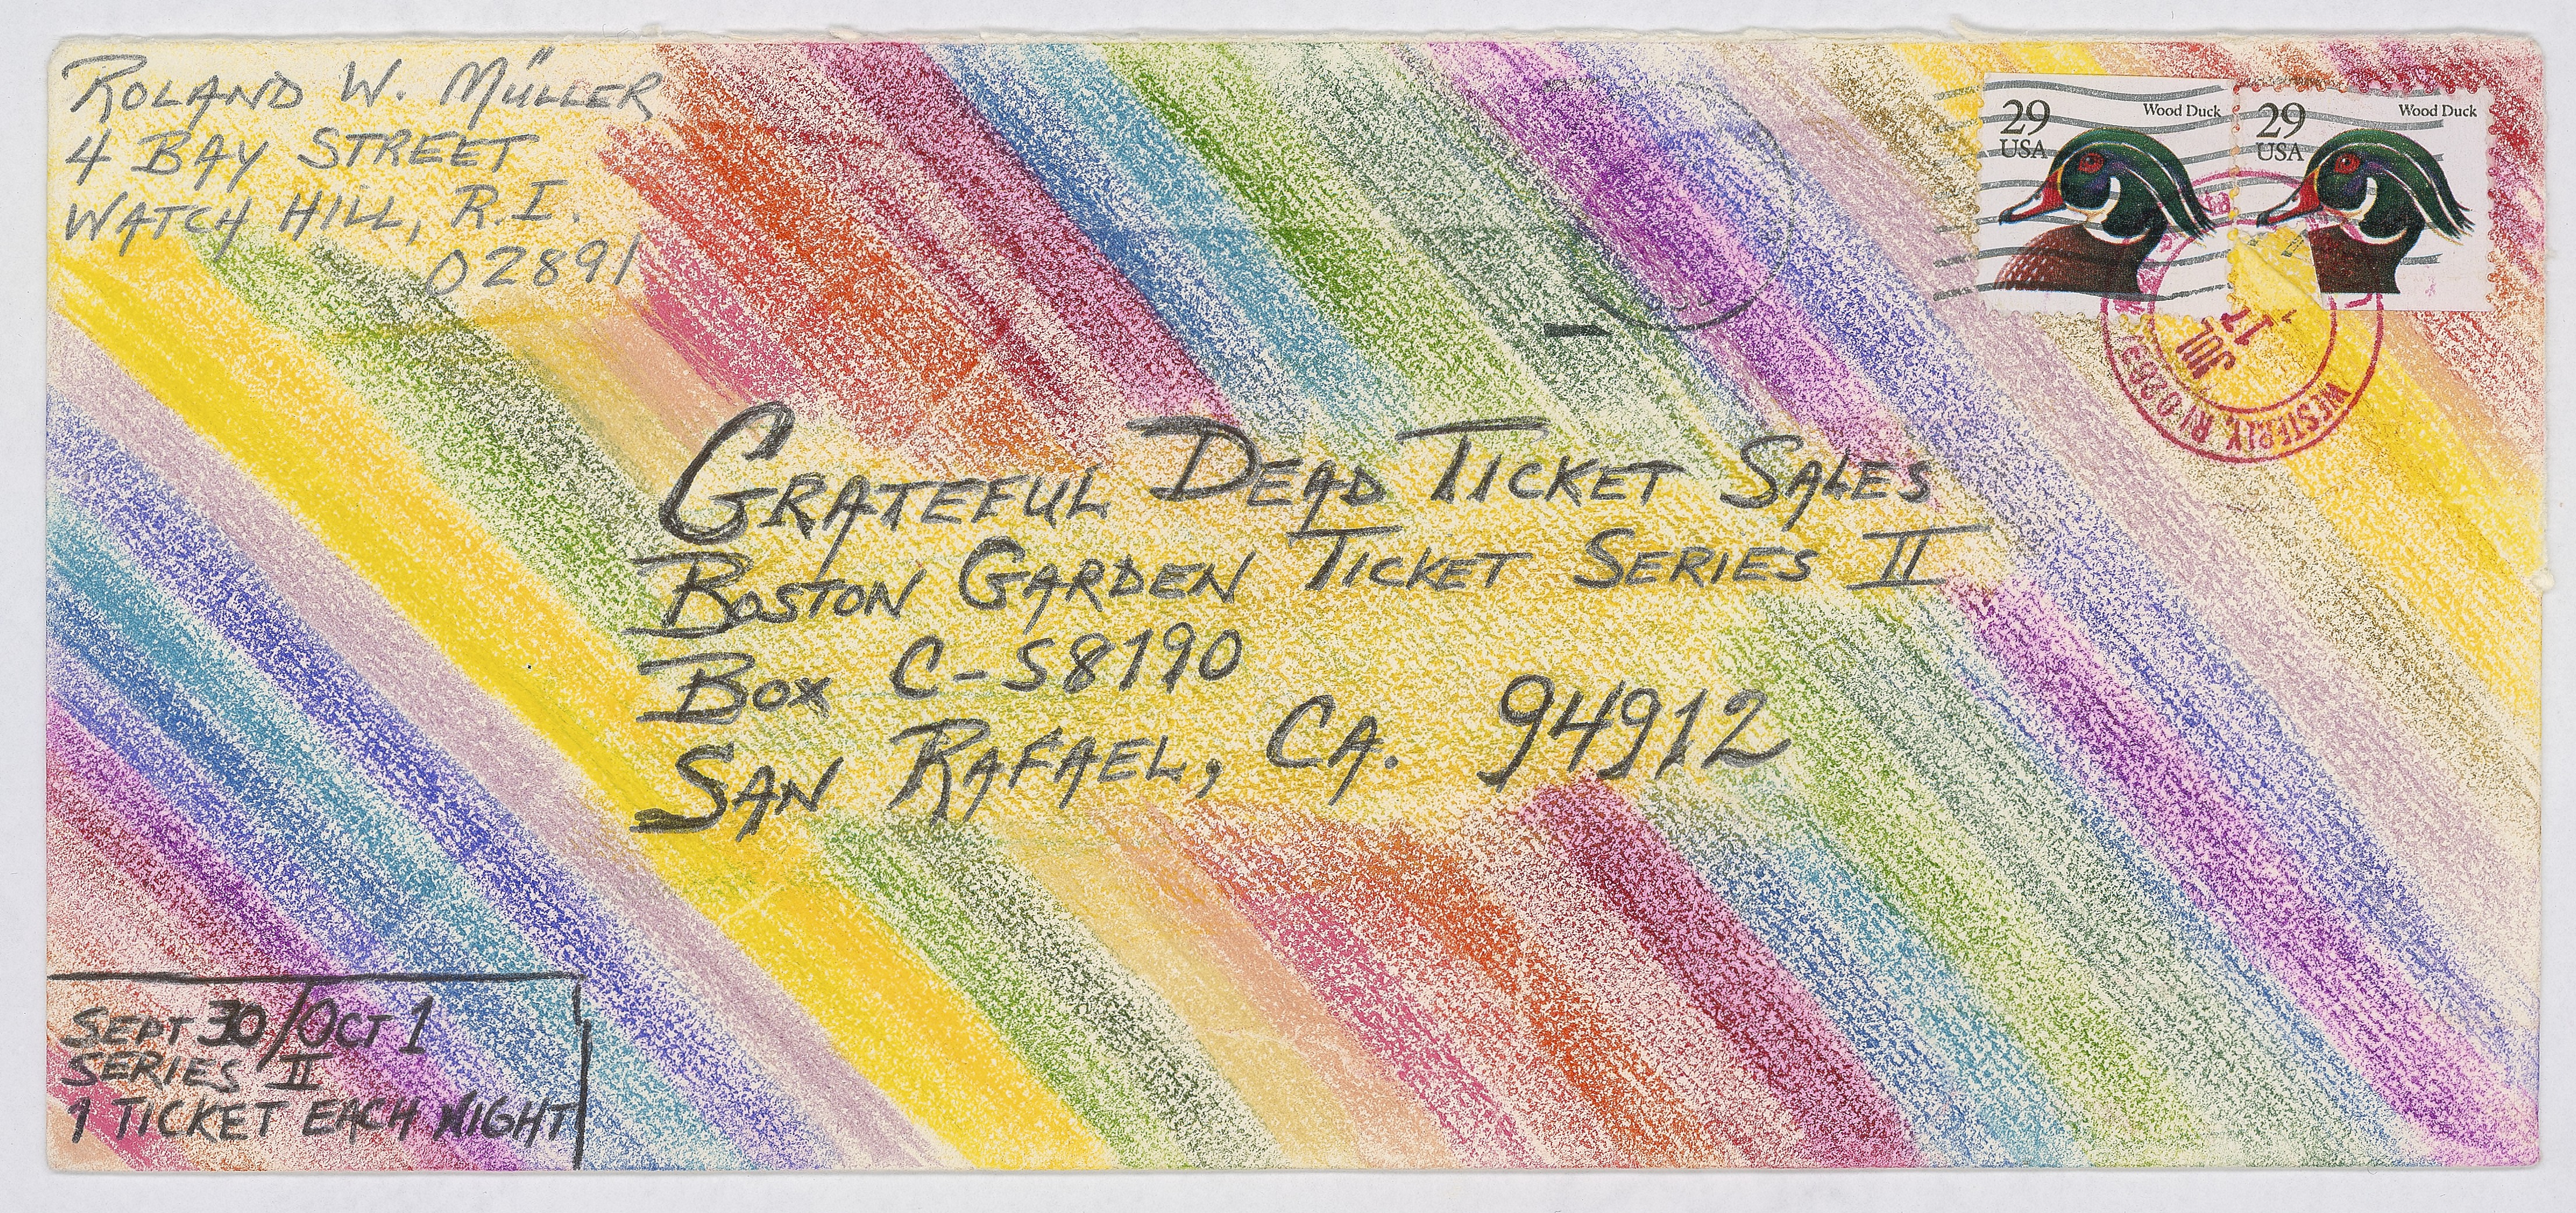 ROLAND W. MÜLLER
4 BAY STREET
WATCH HILL, R.I.
02891
29
USA
Wood Duck
29
USA
Wood Duck
JUL
17
WESTERLY, RI
GRATEFUL DEAD TICKET SALES
BOSTON GARDEN TICKET SERIES II
BOX C-S8190
SAN RAFAEL, CA. 94912
SEPT 30/OCT 1
SERIES II
1 TICKET EACH NIGHT